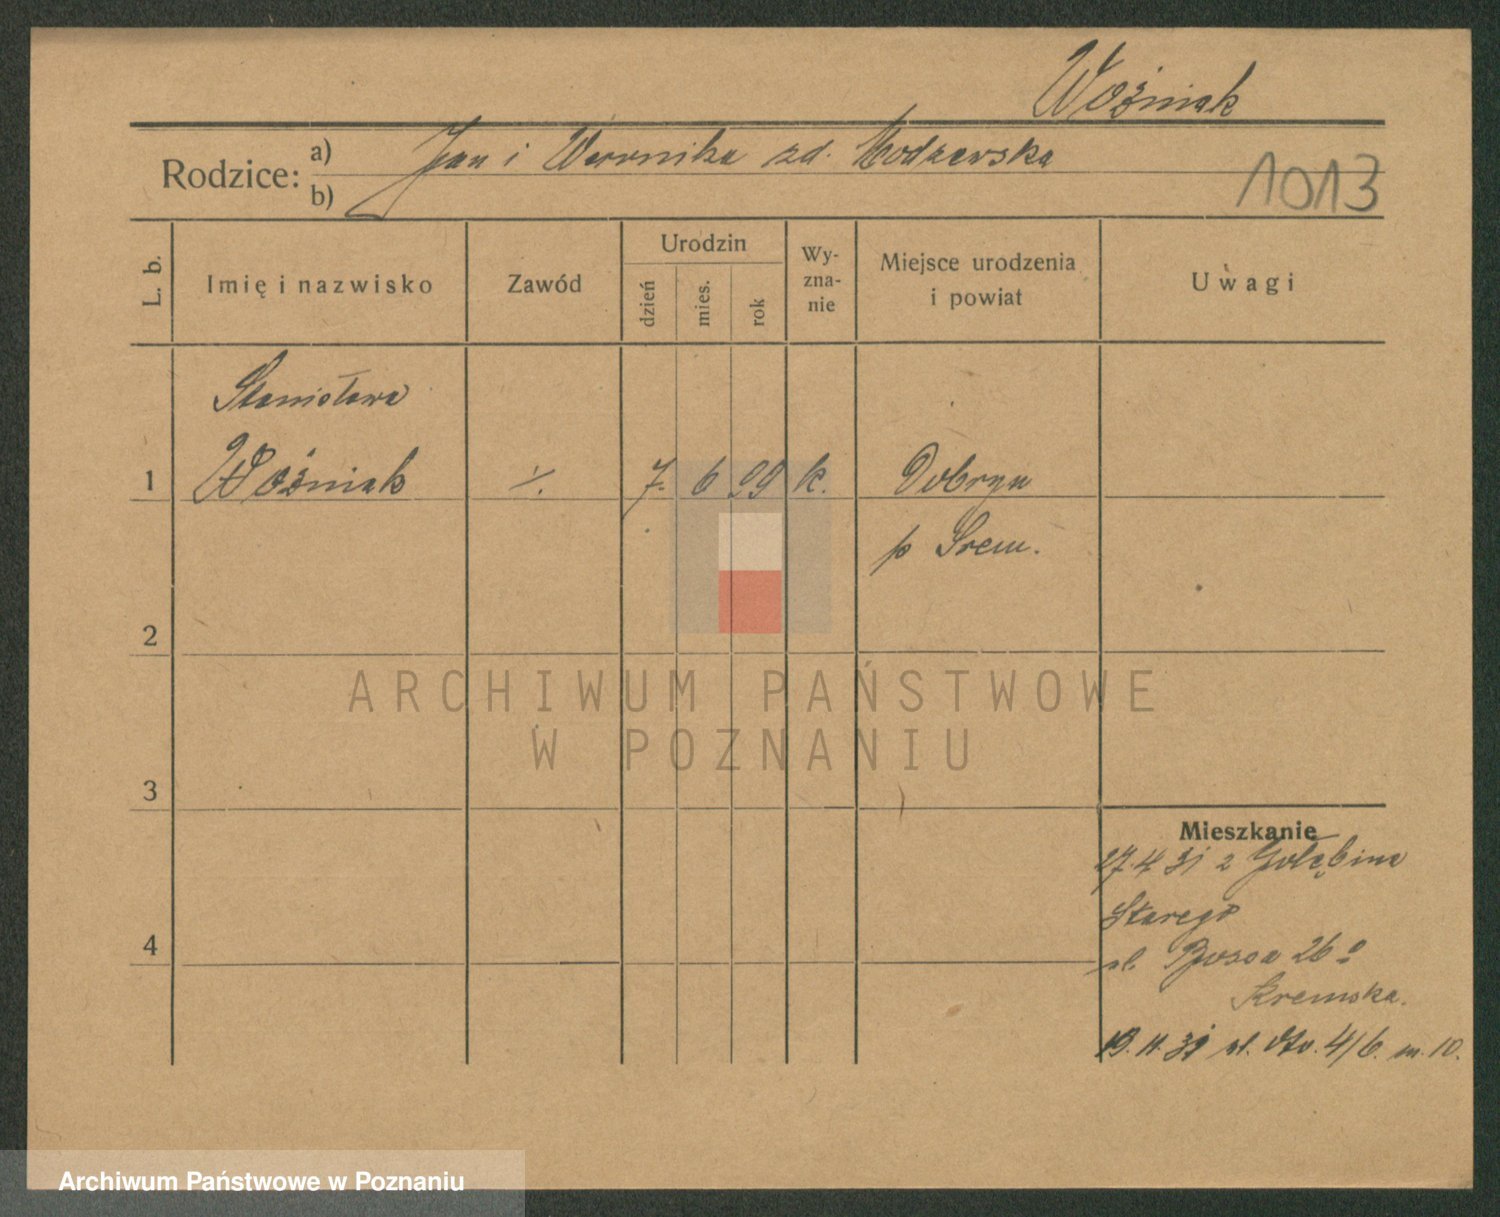 Woźniak
Rodzice: a) Jan i Weronika zd. Modzewska
b)
1013
L. b.
Imię i nazwisko
Zawód
Urodzin
dzień
mies.
rok
Wy-
zna-
nie
Miejsce urodzenia
i powiat
Uwagi
Stanisława
1 Woźniak ·/. 7. 6 99 k.
p Śrem.
2
3
4
Mieszkanie
27.4 31 z Gołębina
Starego
ul. 26
19. 11. 31 ul. dto. 4/6. m. 10.
ARCHIWUM PAŃSTWOWE
W POZNANIU
Archiwum Państwowe w Poznaniu